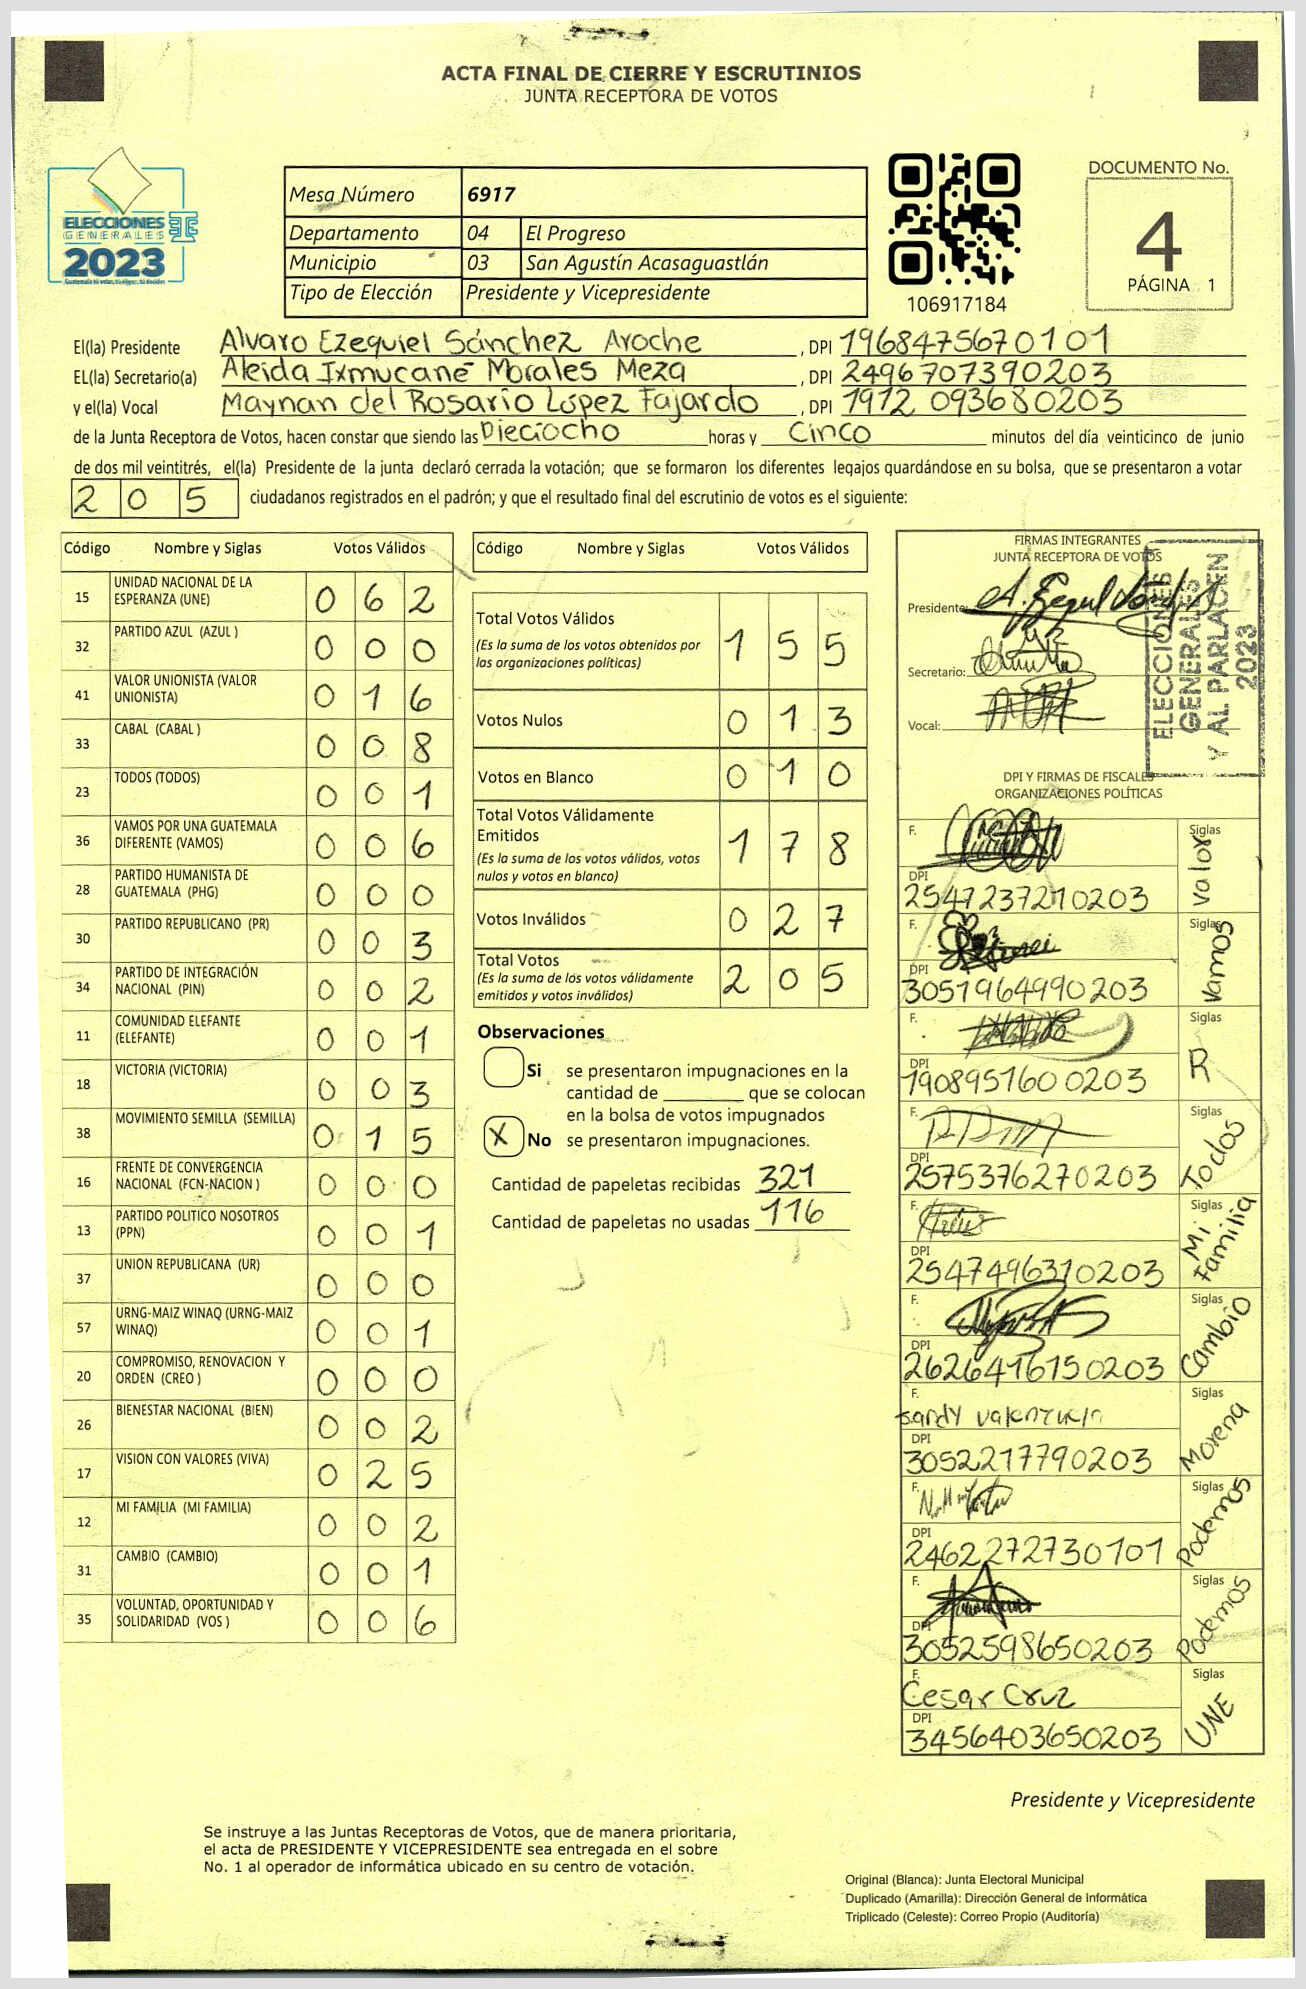 ACTA FINAL DE CIERRE Y ESCRUTINIOS
JUNTA RECEPTORA DE VOTOS
ELECCIONES
GENERALES
2023
Mesa Número 6917
Departamento 04 El Progreso
Municipio 03 San Agustín Acasaguastlán
Tipo de Elección Presidente y Vicepresidente
106917184
DOCUMENTO No.
4
PÁGINA 1
El(la) Presidente Alvaro Ezequiel Sánchez Aroche , DPI 1968475670101
EL(la) Secretario(a) Aleida Ixmucané Morales Meza , DPI 2496707390203
y el(la) Vocal Maynan del Rosario López Fajardo , DPI 1912 093680203
de la Junta Receptora de Votos, hacen constar que siendo las Dieciocho horas y Cinco minutos del día veinticinco de junio
de dos mil veintitrés, el(la) Presidente de la junta declaró cerrada la votación; que se formaron los diferentes legajos guardándose en su bolsa, que se presentaron a votar
205 ciudadanos registrados en el padrón; y que el resultado final del escrutinio de votos es el siguiente:
Código Nombre y Siglas Votos Válidos
15 UNIDAD NACIONAL DE LA ESPERANZA (UNE) 0 6 2
32 PARTIDO AZUL (AZUL ) 0 0 0
41 VALOR UNIONISTA (VALOR UNIONISTA) 0 1 6
33 CABAL (CABAL ) 0 0 8
23 TODOS (TODOS) 0 0 1
36 VAMOS POR UNA GUATEMALA DIFERENTE (VAMOS) 0 0 6
28 PARTIDO HUMANISTA DE GUATEMALA (PHG) 0 0 0
30 PARTIDO REPUBLICANO (PR) 0 0 3
34 PARTIDO DE INTEGRACIÓN NACIONAL (PIN) 0 0 2
11 COMUNIDAD ELEFANTE (ELEFANTE) 0 0 1
18 VICTORIA (VICTORIA) 0 0 3
38 MOVIMIENTO SEMILLA (SEMILLA) 0 1 5
16 FRENTE DE CONVERGENCIA NACIONAL (FCN-NACION ) 0 0 0
13 PARTIDO POLITICO NOSOTROS (PPN) 0 0 1
37 UNION REPUBLICANA (UR) 0 0 0
57 URNG-MAIZ WINAQ (URNG-MAIZ WINAQ) 0 0 1
20 COMPROMISO, RENOVACION Y ORDEN (CREO ) 0 0 0
26 BIENESTAR NACIONAL (BIEN) 0 0 2
17 VISION CON VALORES (VIVA) 0 2 5
12 MI FAMILIA (MI FAMILIA) 0 0 2
31 CAMBIO (CAMBIO) 0 0 1
35 VOLUNTAD, OPORTUNIDAD Y SOLIDARIDAD (VOS ) 0 0 6
Código Nombre y Siglas Votos Válidos
Total Votos Válidos 1 5 5
(Es la suma de los votos obtenidos por
las organizaciones políticas)
Votos Nulos 0 1 3
Votos en Blanco 0 1 0
Total Votos Válidamente
Emitidos 1 7 8
(Es la suma de los votos válidos, votos
nulos y votos en blanco)
Votos Inválidos 0 2 7
Total Votos 2 0 5
(Es la suma de los votos válidamente
emitidos y votos inválidos)
Observaciones
Si se presentaron impugnaciones en la
cantidad de ________ que se colocan
en la bolsa de votos impugnados
X No se presentaron impugnaciones.
Cantidad de papeletas recibidas 321
Cantidad de papeletas no usadas 116
FIRMAS INTEGRANTES
JUNTA RECEPTORA DE VOTOS
Presidente:
Secretario:
Vocal:
ELECCIONES
GENERALES
Y AL PARLACEN
2023
DPI Y FIRMAS DE FISCALES
ORGANIZACIONES POLÍTICAS
F. Siglas Valor
DPI 2547237210203
F. Siglas Vamos
DPI 3051964990203
F. Siglas R
DPI 1908951600203
F. Siglas Todos
DPI 2575376270203
F. Siglas Mi Familia
DPI 2547496310203
F. Siglas Cambio
DPI 2626416150203
F. Sandy Valenzuela Siglas Morena
DPI 3052217790203
F. Siglas Podemos
DPI 2462272730101
F. Siglas Podemos
DPI 3052598650203
F. Cesar Cruz Siglas UNE
DPI 3456403650203
Presidente y Vicepresidente
Se instruye a las Juntas Receptoras de Votos, que de manera prioritaria,
el acta de PRESIDENTE Y VICEPRESIDENTE sea entregada en el sobre
No. 1 al operador de informática ubicado en su centro de votación.
Original (Blanca): Junta Electoral Municipal
Duplicado (Amarilla): Dirección General de Informática
Triplicado (Celeste): Correo Propio (Auditoría)